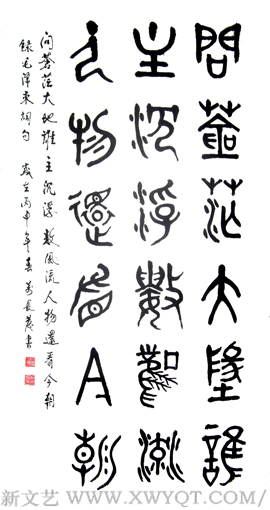 問蒼茫大地誰
主沉浮數風流
人物還看今朝
问蒼茫大地誰主沉浮數風流人物還看今朝
錄毛澤東詞句 歲在丙申年春 書
新文艺/WWW.XWYQT.COM/